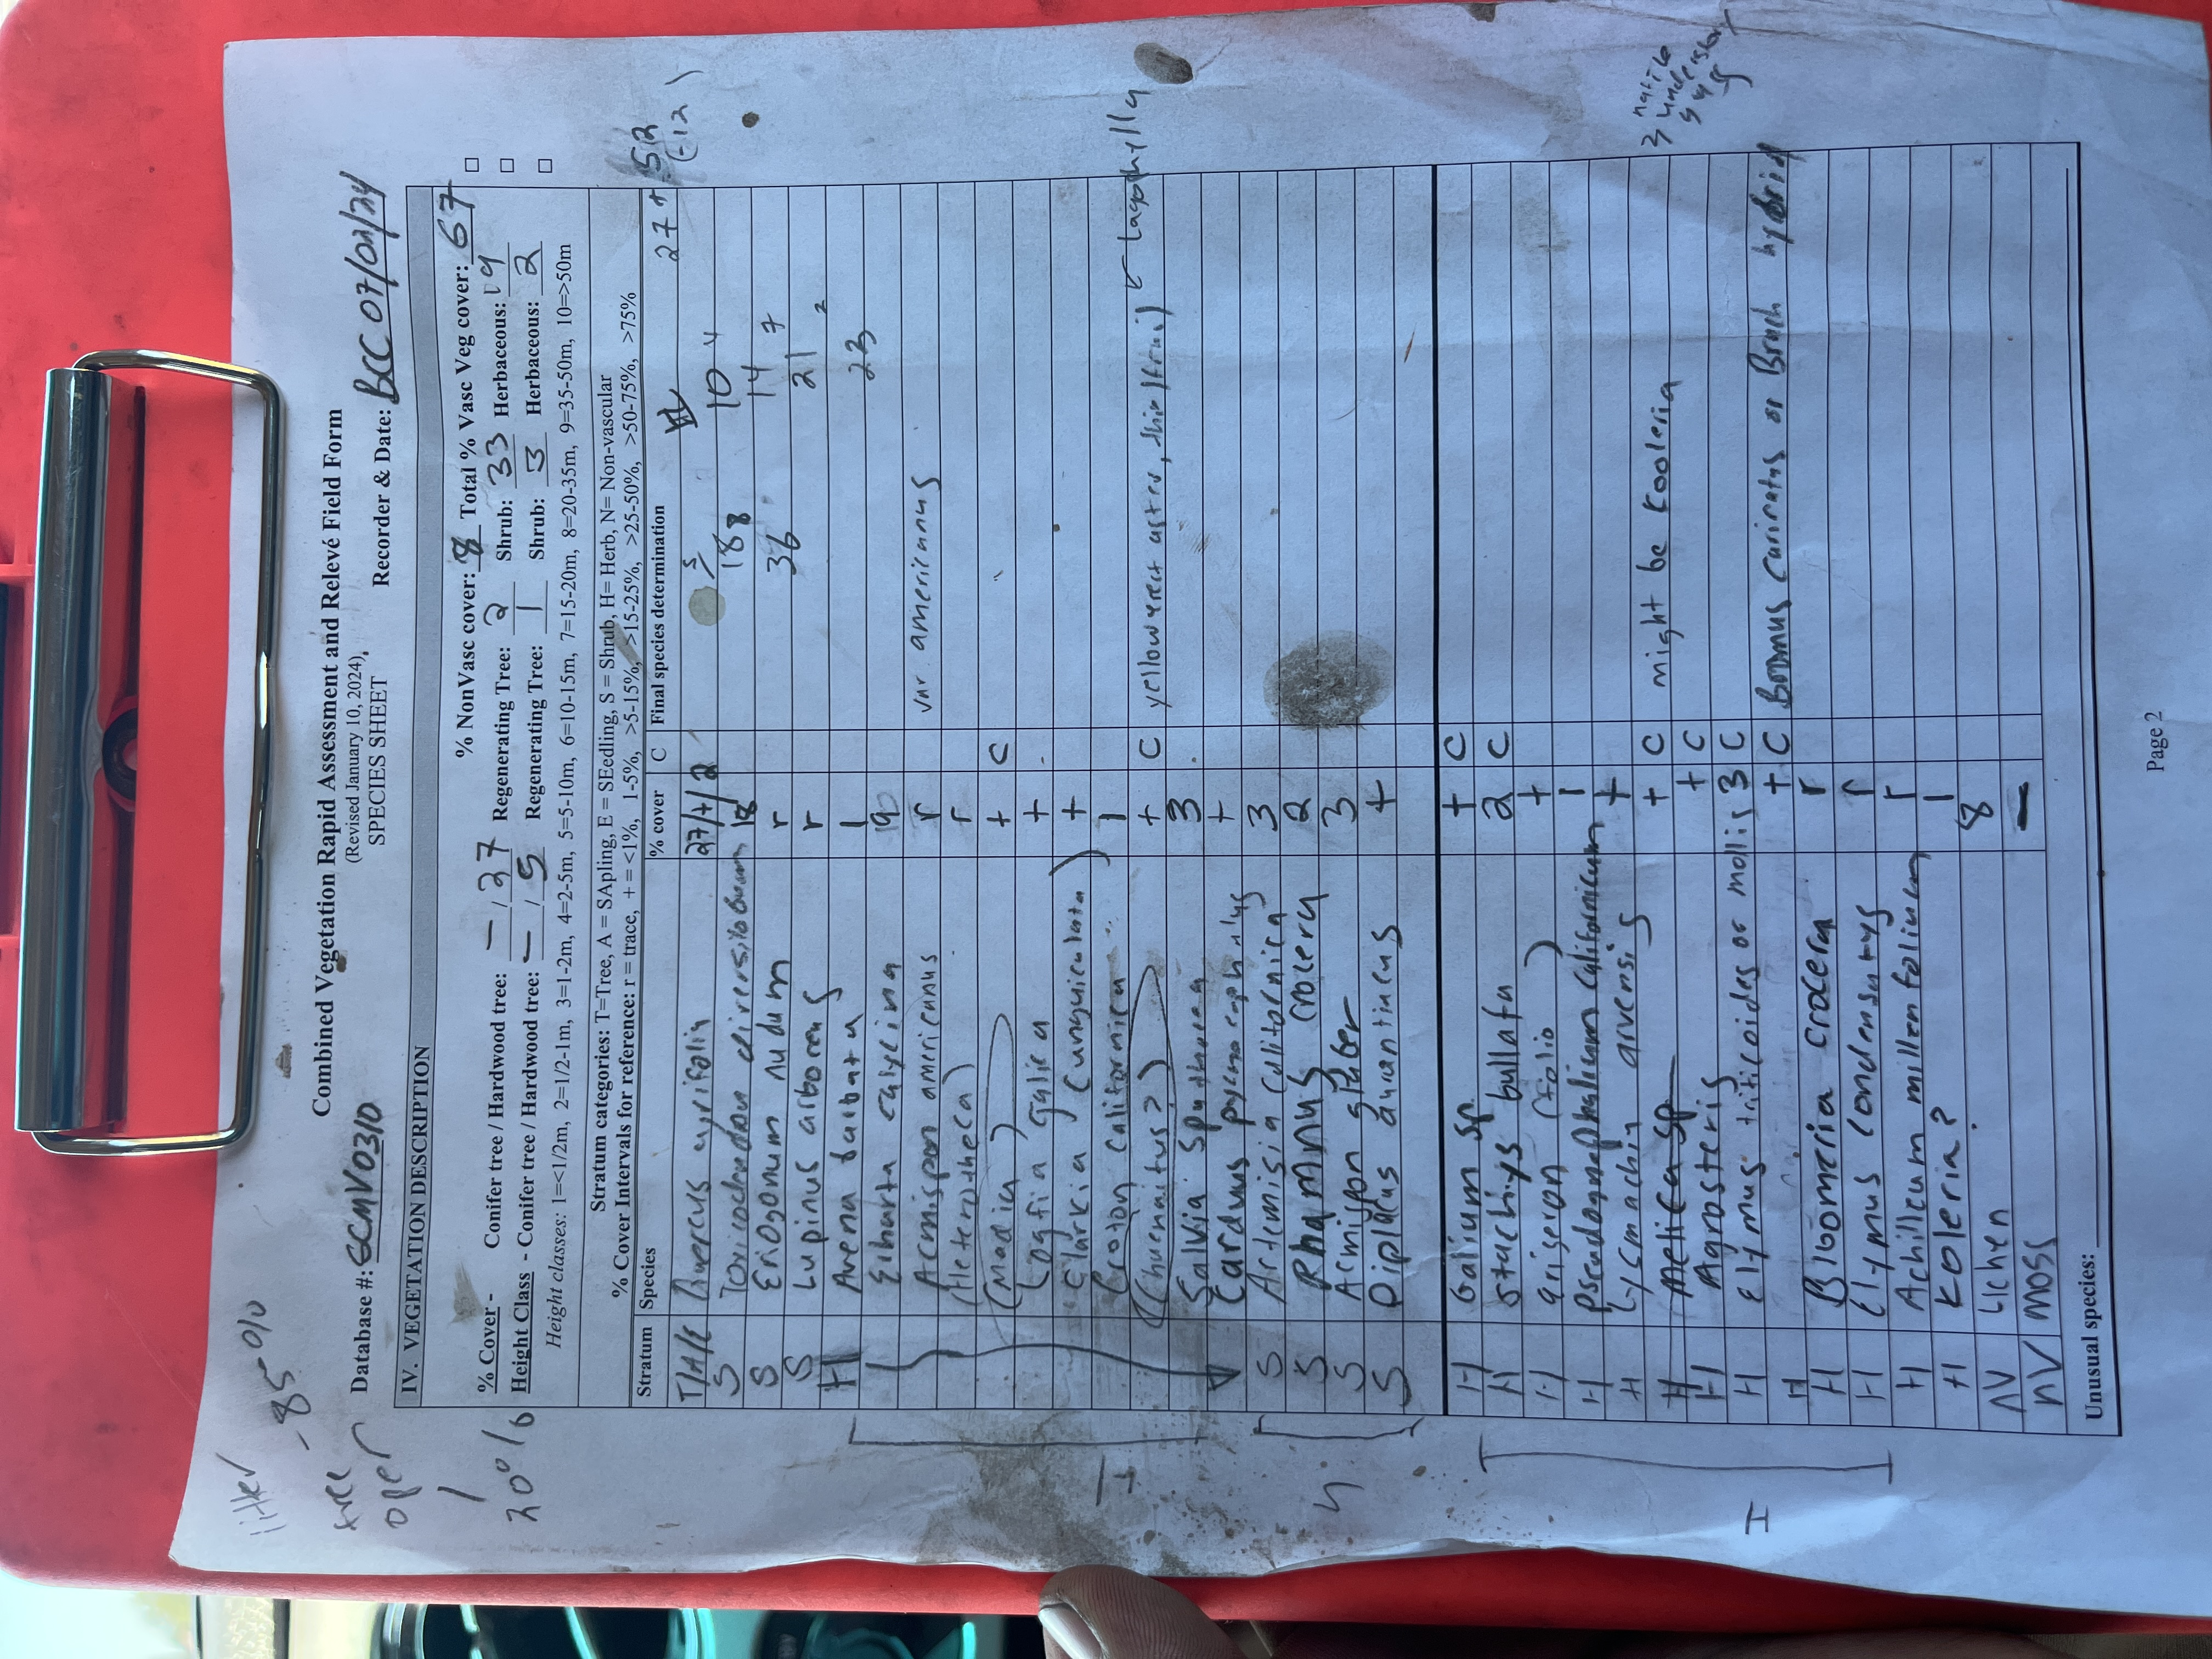 litter - 85%
Combined Vegetation Rapid Assessment and Relevé Field Form
(Revised January 10, 2024)
SPECIES SHEET
Database #: GCMV0310 Recorder & Date: BCC 07/02/24
IV. VEGETATION DESCRIPTION
% NonVasc cover: 8 Total % Vasc Veg cover: 67
% Cover - Conifer tree / Hardwood tree: — / 27 Regenerating Tree: 2 Shrub: 33 Herbaceous: 19
Height Class - Conifer tree / Hardwood tree: — / 5 Regenerating Tree: 1 Shrub: 3 Herbaceous: 2
20%
Height classes: 1=<1/2m, 2=1/2-1m, 3=1-2m, 4=2-5m, 5=5-10m, 6=10-15m, 7=15-20m, 8=20-35m, 9=35-50m, 10=>50m
Stratum categories: T=Tree, A = SApling, E = SEedling, S = Shrub, H= Herb, N= Non-vascular
% Cover Intervals for reference: r = trace, + = <1%, 1-5%, >5-15%, >15-25%, >25-50%, >50-75%, >75%
Stratum Species % cover C Final species determination 27 + 52
(-12)
T/A/E Quercus agrifolia 27/+/2 S H
S Toxicodendron diversilobum 18 18 8 10 4
S Eriogonum nudum r 36 14 7
S Lupinus arboreus r 21 2
H Avena barbata 1
Ehharta calycina 19 23
Acmispon americanus r var americanus
(Heterotheca) r
(Madia) + C
Logfia galica +
Clarkia (unguiculata) +
Croton californica 1
(Chuenaitus?) + C yellow erect astres, thin (fruit) ← Lagophylla
Salvia spathacea 3
Carduus pycnocephalus +
S Artemisia californica 3
S Rhamnus crocera 2
S Acmispon glaber 3
S Diplacus aurantiacus +
H Galium sp. + C
H stachys bullata 2 C
H erigeron (folio) +
H Pseudognaphalium californicum 1
H Lysmachia arvensis +
H Melica sp + C might be Kooleria
H Agrosteris + C
H Elymus triticoides or mollis 3 C
H + C Bromus carinatus or Brach hybrid
H Bloomeria crocera r
H Elymus condensatus r
H Achilleum millenfolium r
H Koleria? 1
NV Lichen 8
NV moss —
3 native
H
Unusual species:
Page 2